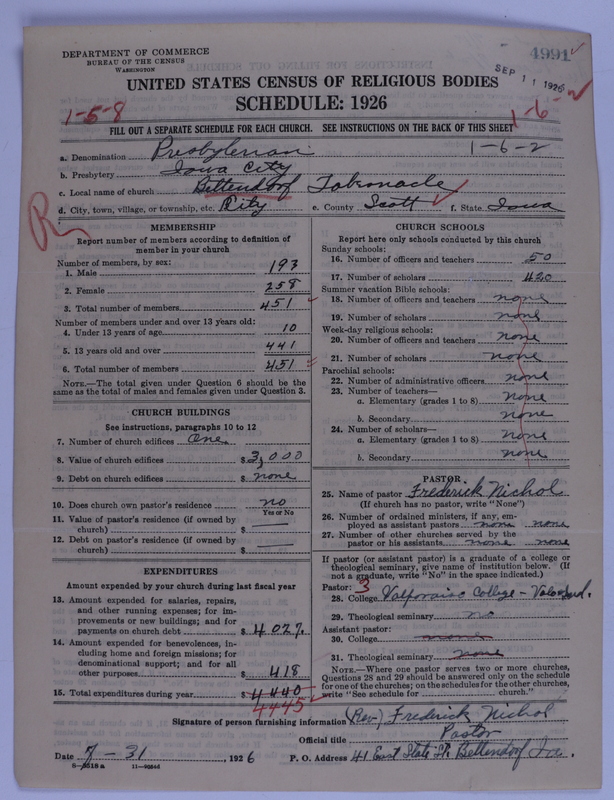 DEPARTMENT OF COMMERCE
BUREAU OF THE CENSUS
WASHINGTON
4991
SEP 11 1926
UNITED STATES CENSUS OF RELIGIOUS BODIES
SCHEDULE: 1926
1-5-8
1-6-
FILL OUT A SEPARATE SCHEDULE FOR EACH CHURCH. SEE INSTRUCTIONS ON THE BACK OF THIS SHEET
a. Denomination Presbyterian 1-6-2
b. Presbytery Iowa City
c. Local name of church Bettendorf Tabernacle
d. City, town, village, or township, etc. City e. County Scott f. State Iowa
MEMBERSHIP
Report number of members according to definition of
member in your church
Number of members, by sex:
1. Male 193
2. Female 258
3. Total number of members 451
Number of members under and over 13 years old:
4. Under 13 years of age 10
5. 13 years old and over 441
6. Total number of members 451
NOTE.—The total given under Question 6 should be the
same as the total of males and females given under Question 3.
CHURCH BUILDINGS
See instructions, paragraphs 10 to 12
7. Number of church edifices One
8. Value of church edifices $ 3,000
9. Debt on church edifices $ none
10. Does church own pastor's residence no
Yes or No
11. Value of pastor's residence (if owned by
church) $ —
12. Debt on pastor's residence (if owned by
church) $ —
EXPENDITURES
Amount expended by your church during last fiscal year
13. Amount expended for salaries, repairs,
and other running expenses; for im-
provements or new buildings; and for
payments on church debt $ 4027.
14. Amount expended for benevolences, in-
cluding home and foreign missions; for
denominational support; and for all
other purposes $ 418
15. Total expenditures during year $ 4440
4445
CHURCH SCHOOLS
Report here only schools conducted by this church
Sunday schools:
16. Number of officers and teachers 50
17. Number of scholars 420
Summer vacation Bible schools:
18. Number of officers and teachers none
19. Number of scholars none
Week-day religious schools:
20. Number of officers and teachers none
21. Number of scholars none
Parochial schools:
22. Number of administrative officers none
23. Number of teachers—
a. Elementary (grades 1 to 8) none
b. Secondary none
24. Number of scholars—
a. Elementary (grades 1 to 8) none
b. Secondary none
PASTOR
25. Name of pastor Frederick Nichol
(If church has no pastor, write "None")
26. Number of ordained ministers, if any, em-
ployed as assistant pastors none none
27. Number of other churches served by the
pastor or his assistants none none
If pastor (or assistant pastor) is a graduate of a college or
theological seminary, give name of institution below. (If
not a graduate, write "No" in the space indicated.)
Pastor: 3
28. College Valparaiso College - Valpo Ind.
29. Theological seminary no
Assistant pastor:
30. College none
31. Theological seminary none
NOTE.—Where one pastor serves two or more churches,
Questions 28 and 29 should be answered only on the schedule
for one of the churches; on the schedules for the other churches,
write "See schedule for church."
Signature of person furnishing information (Rev.) Frederick Nichol
Official title Pastor
Date 7-31, 1926 P. O. Address 41 East State St. Bettendorf Ia.
11—9554d